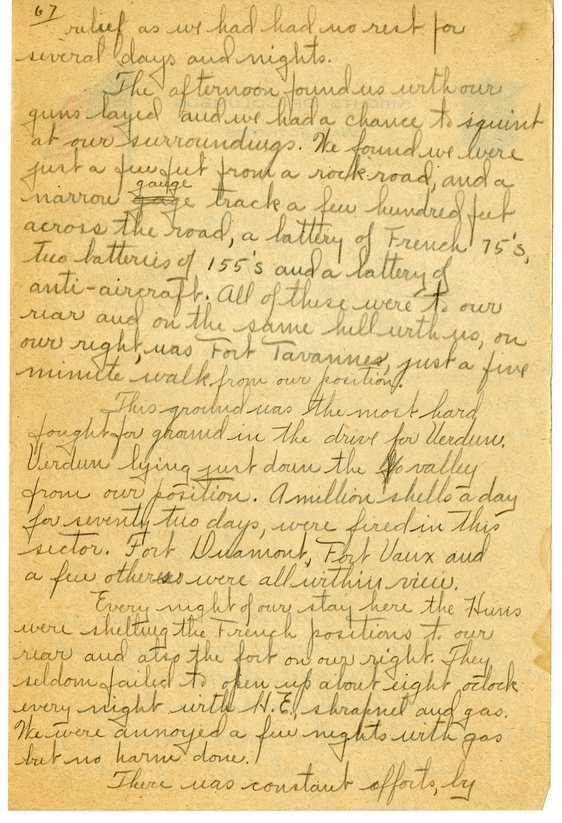 67
relief as we had had no rest for
several days and nights.
The afternoon found us with our
guns layed and we had a chance to squint
at our surroundings. We found we were
just a few feet from a rock road, and a
gauge
narrow gage track a few hundred feet
across the road, a battery of French 75's,
two batteries of 155's and a battery of
anti-aircraft. All of these were to our
rear and on the same hill with us, on
our right, was Fort Tavannes, just a five
minute walk from our position.
This ground was the most hard
fought for ground in the drive for Verdun.
Verdun lying just down the valley
from our position. A million shells a day
for seventy two days, were fired in this
sector. Fort Duamont, Fort Vaux and
a few others were all within view.
Every night of our stay here the Huns
were shelling the French positions to our
rear and also the fort on our right. They
seldom failed to open up about eight oclock
every night with H.E., shrapnel and gas.
We were annoyed a few nights with gas
but no harm done.
There was constant efforts, by